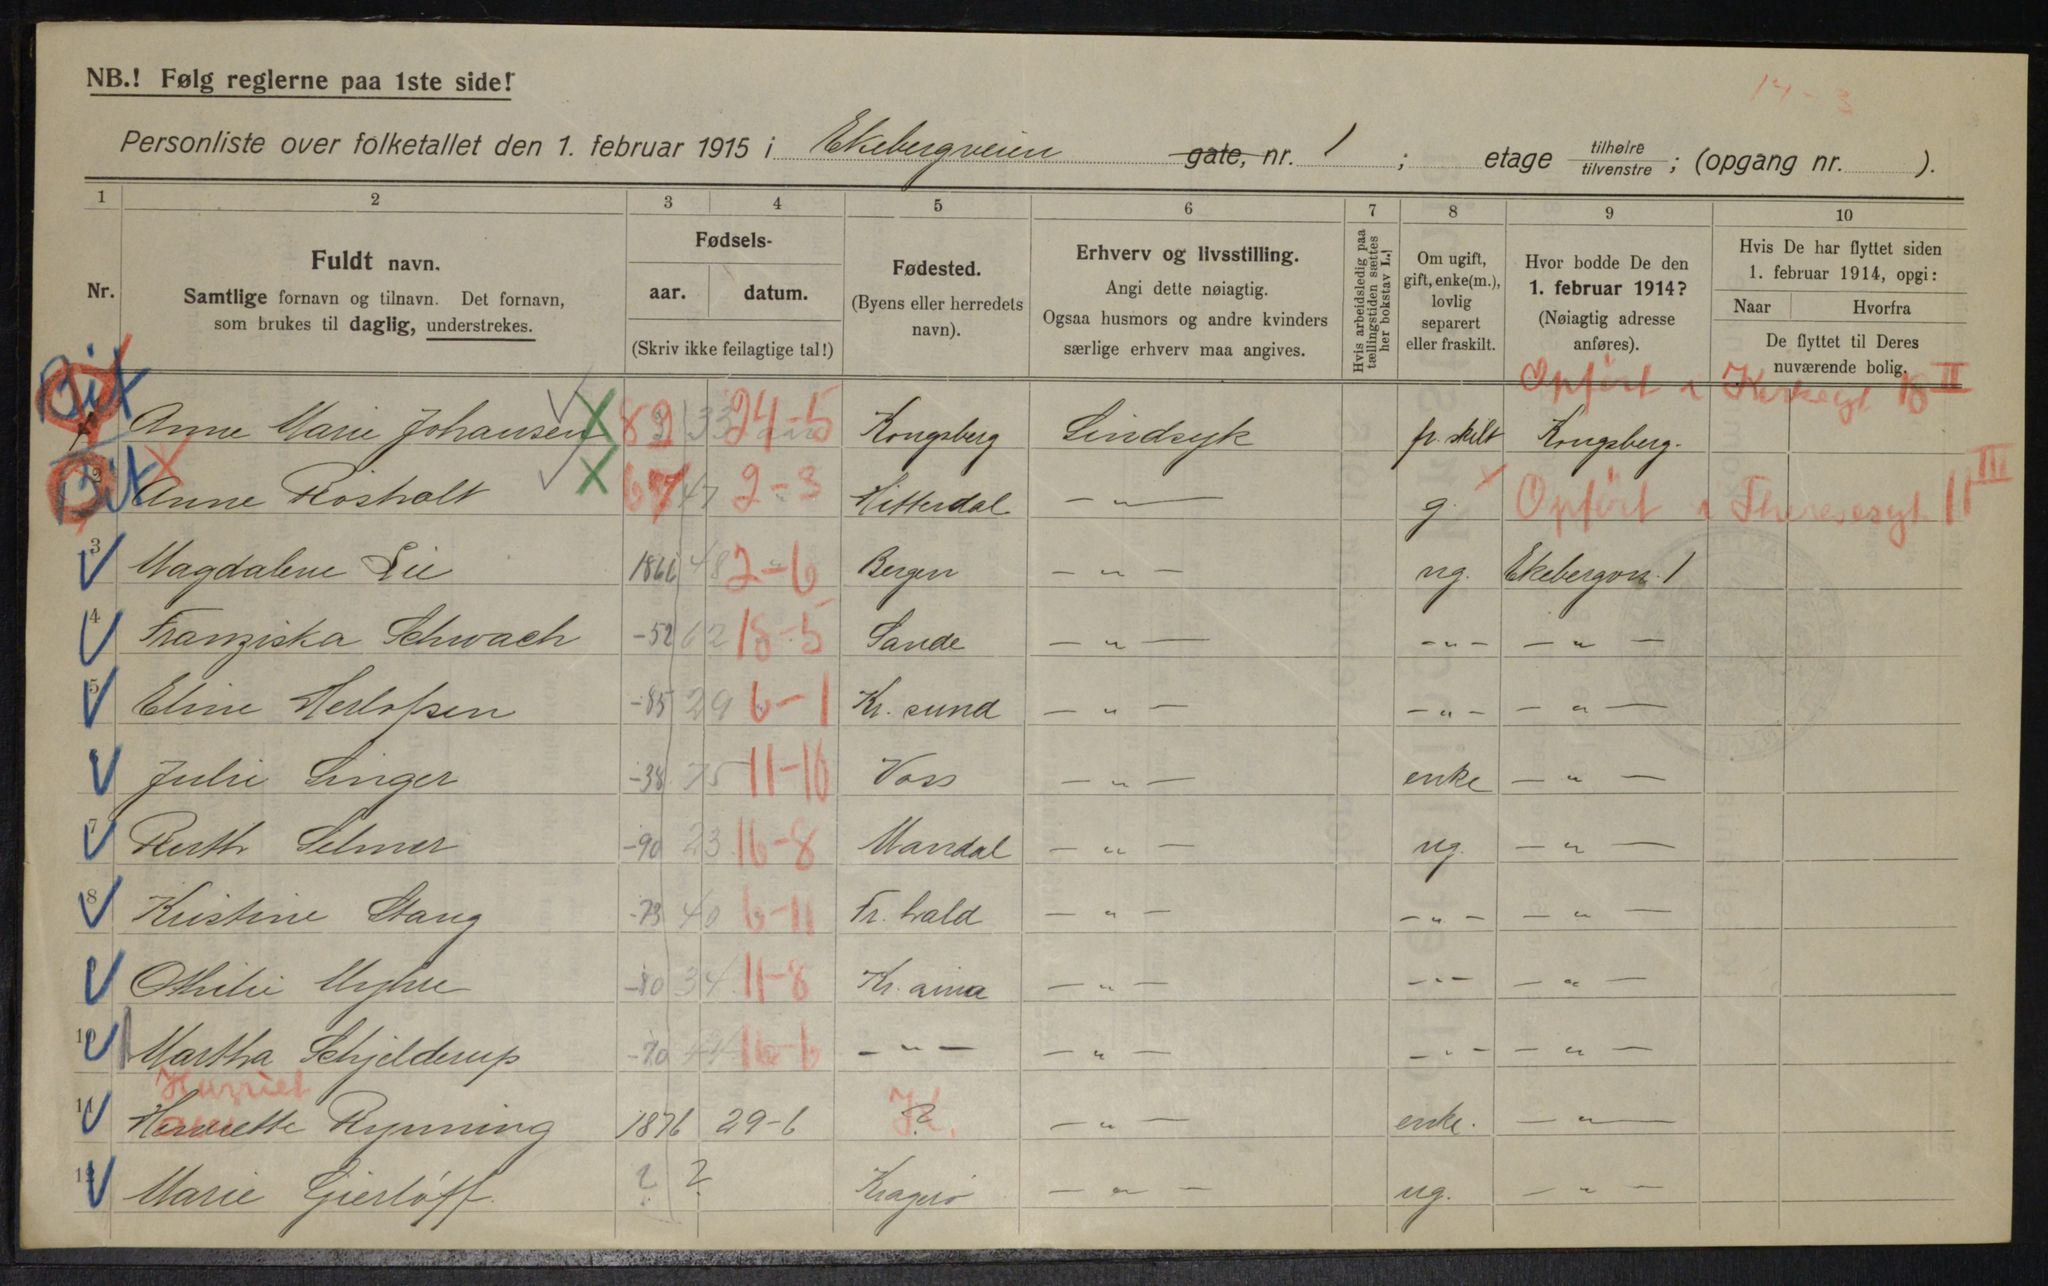 14-3
NB.! Følg reglerne paa 1ste side!
Personliste over folketallet den 1. februar 1915 i Ekebergveien gate, nr. 1 ; etage tilhøire tilvenstre ; (opgang nr. ).
1 2 3 4 5 6 7 8 9 10
Nr.
Fuldt navn.
Samtlige fornavn og tilnavn. Det fornavn,
som brukes til daglig, understrekes.
Fødsels-
aar. datum.
(Skriv ikke feilagtige tal!)
Fødested.
(Byens eller herredets
navn).
Erhverv og livsstilling.
Angi dette nøiagtig.
Ogsaa husmors og andre kvinders
særlige erhverv maa angives.
Hvis arbeidsledig paa
tællingstiden sættes
her bokstav L.
Om ugift,
gift, enke(m.),
lovlig
separert
eller fraskilt.
Hvor bodde De den
1. februar 1914?
(Nøiagtig adresse
anføres).
Hvis De har flyttet siden
1. februar 1914, opgi:
Naar Hvorfra
De flyttet til Deres
nuværende bolig.
Opført i Kirkegt 18 II
Anne Marie Johansen 82 33 24-5 Kongsberg Sindsyk fr. skilt Kongsberg.
2 Anne Rosholt 67 47 2-3 Hitterdal — " — g. Opført i Theresesgt 11 III
3 Magdalene Lie 1866 48 2-6 Bergen — " — ug. Ekebergvn. 1
4 Franziska Schwach -52 62 18-5 Sande — " — — " — — " —
5 Eline Herlofsen -85 29 6-1 Kr. sund — " — — " — — " —
6 Julie Singer -38 75 11-10 Voss — " — enke — " —
7 Ruth Selmer -90 23 16-8 Mandal — " — ug. — " —
8 Kristine Stang -73 40 6-11 Fr. hald — " — — " — — " —
9 Othilie Myhre -80 34 11-8 Kr. ania — " — — " — — " —
10 Martha Schjelderup -70 44 16-6 — " — — " — — " — — " —
Harriet
11 Henriette Rynning 1876 29-6 ? — " — enke. — " —
12 Marie Gierløff ? ? Kragerø — " — ug. — " —